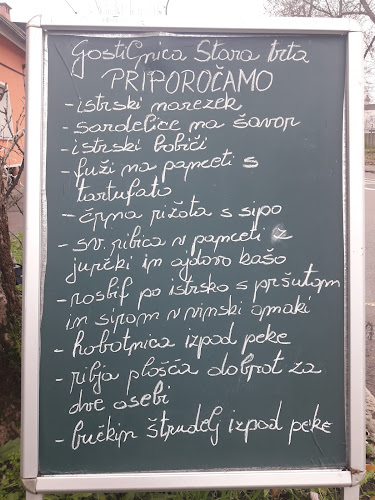 Gostilnica Stara trta
PRIPOROČAMO
- istrski narezek
- sardelice na šavor
- istrski bobiči
- fuži na panceti s
tartufato
- črna rižota s sipo
- sv. ribica v panceti z
jurčki in ajdovo kašo
- rosbif po istrsko s pršutom
in sirom v vinski omaki
- hobotnica izpod peke
- ribja plošča dobrot za
dve osebi
- bučkin štrudelj izpod peke